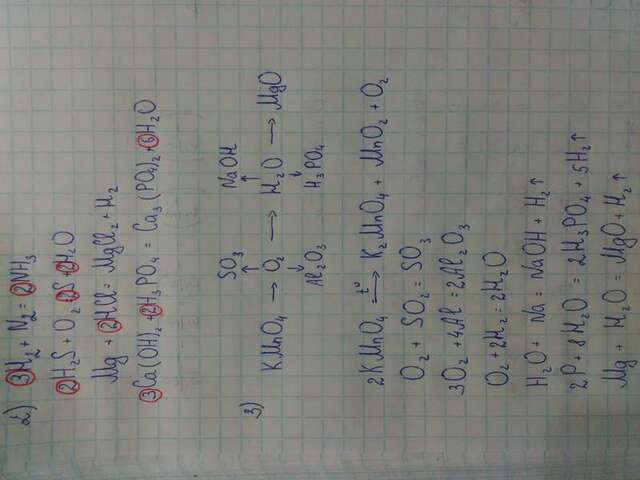 2) 3H₂ + N₂ = 2NH₃
2H₂S + O₂ 2S + 2H₂O
Mg + 2HCl = MgCl₂ + H₂
3Ca(OH)₂ + 2H₃PO₄ = Ca₃(PO₄)₂ + 6H₂O
3)
SO₃ NaOH
↑ ↑
KMnO₄ → O₂ → H₂O → MgO
↓ ↓
Al₂O₃ H₃PO₄
2KMnO₄ t° → K₂MnO₄ + MnO₂ + O₂
O₂ + SO₂ = SO₃
3O₂ + 4Al = 2Al₂O₃
O₂ + 2H₂ = 2H₂O
H₂O + Na = NaOH + H₂↑
2P + 8H₂O = 2H₃PO₄ + 5H₂↑
Mg + H₂O = MgO + H₂↑